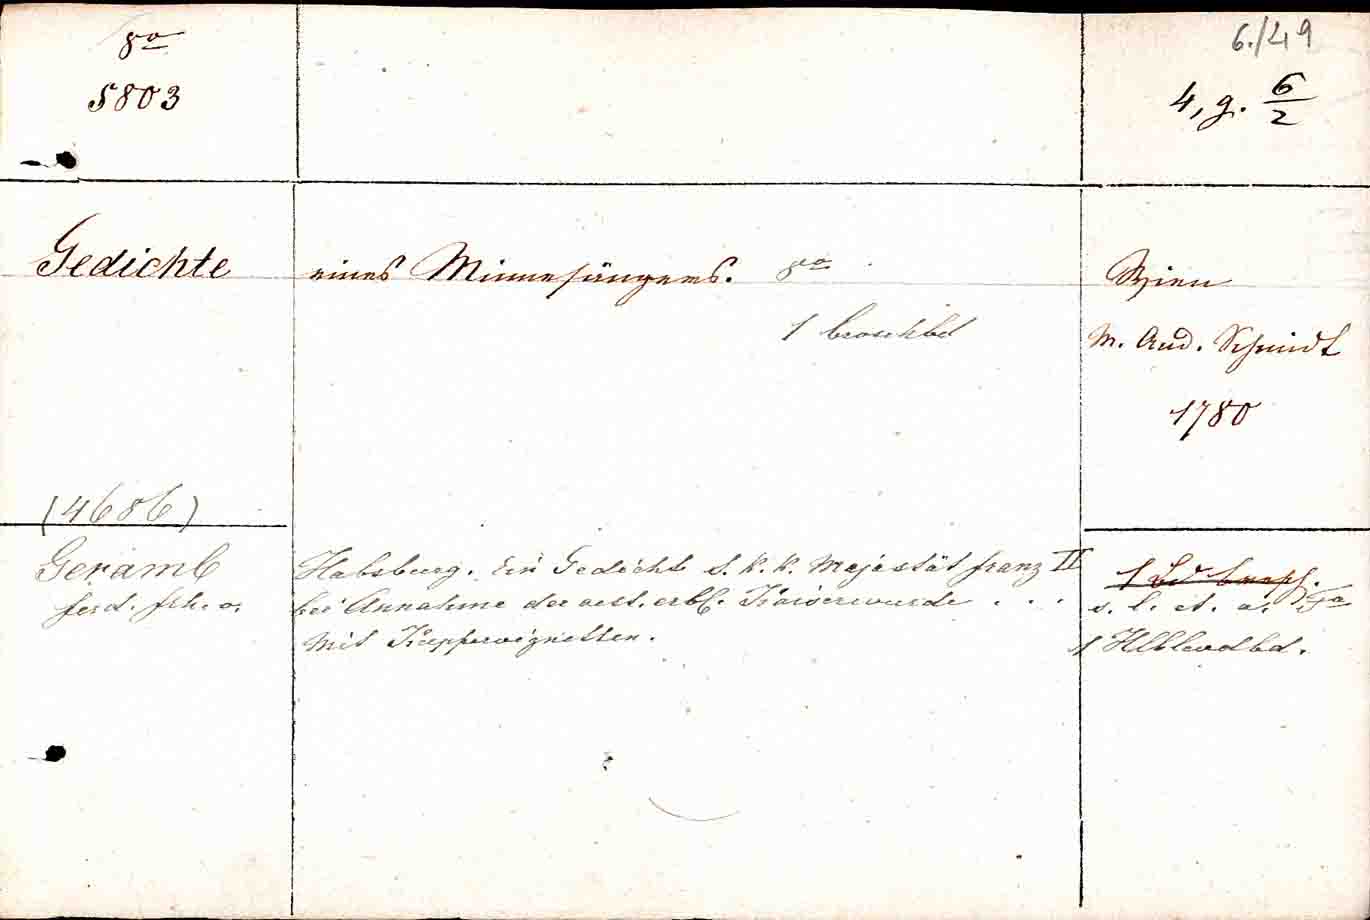 8o
5803
6./49
4, g. 6/2
Gedichte eines Minnesängers. 8o
1 broschbd
Wien
M. And. Schmidt
1780
(4686)
Geramb
ferd. frh. v.
Habsburg. Ein Gedicht S. K. K. Majestät franz II
bei Annahme der oest. erbl. Kaiserwürde . . .
Mit Kupfervignetten.
1 Bd brosch.
s. l. et. a. Fo
1 Hlblwdbd.